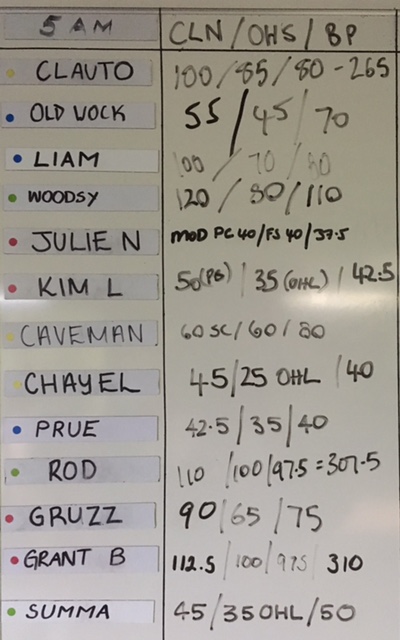 5 AM CLN/OHS/BP
CLAUTO 100/85/80-265
OLD WOCK 55/45/70
LIAM 100/70/80
WOODSY 120/80/110
JULIE N MOD PC 40/FS 40/37.5
KIM L 50(PB)/35(OHL)/42.5
CAVEMAN 60SC/60/80
CHAYEL 45/25 OHL/40
PRUE 42.5/35/40
ROD 110/100/97.5=307.5
GRUZZ 90/65/75
GRANT B 112.5/100/97.5 310
SUMMA 45/35OHL/50